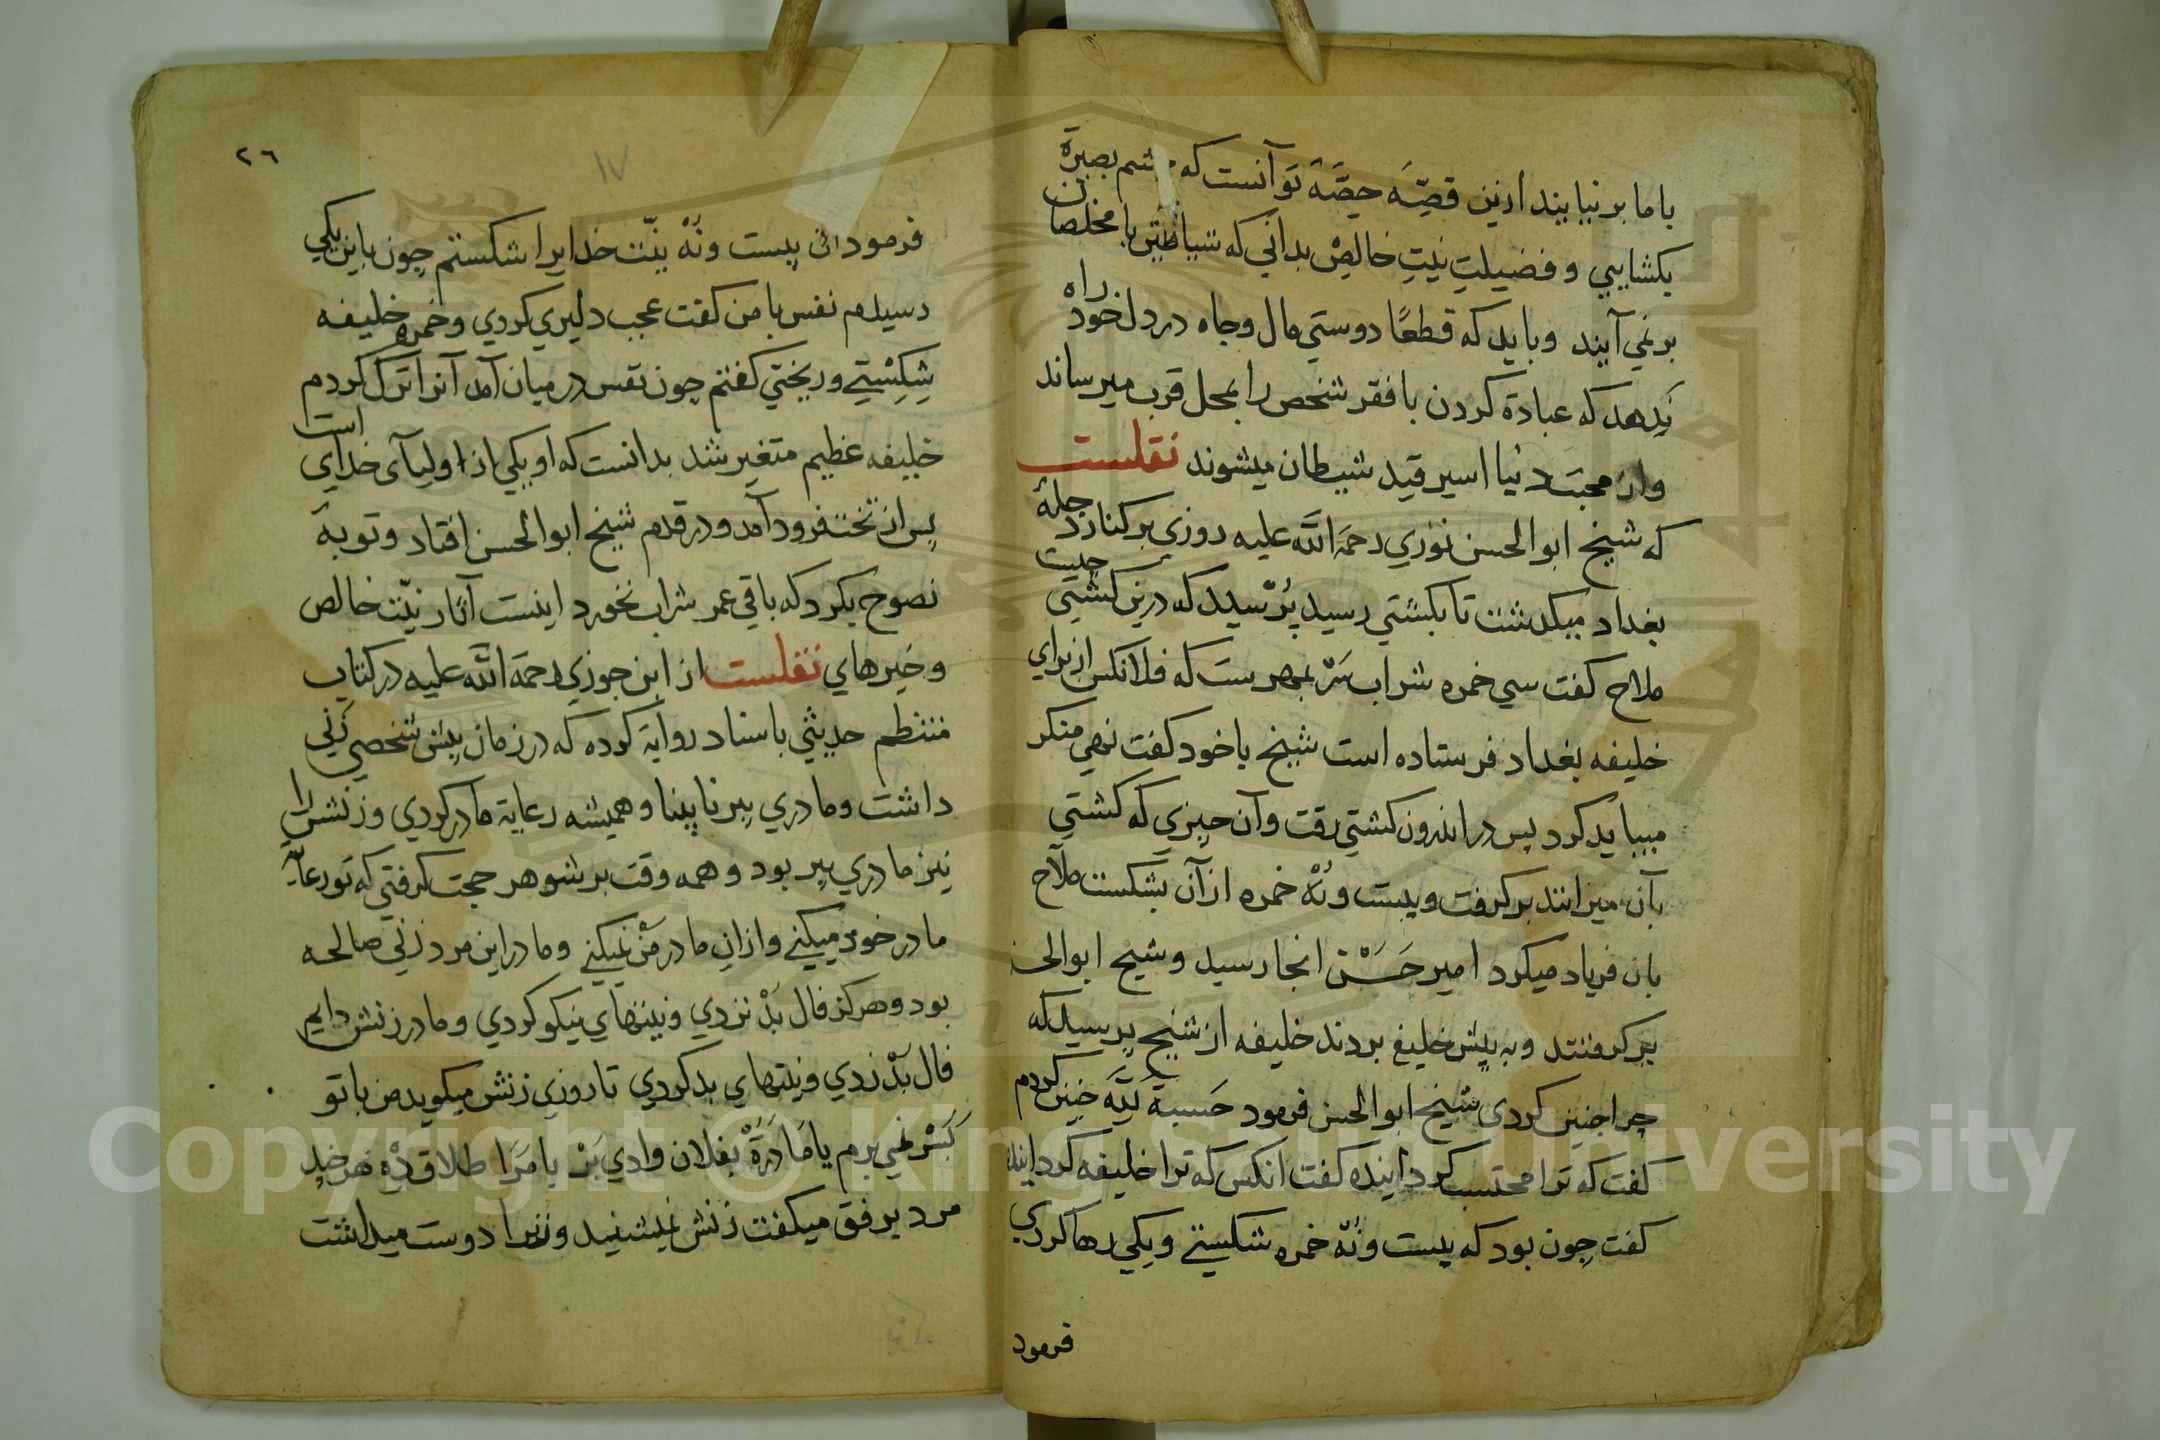 با ما برنیایند ازین قصّه حصّهٔ تو آنست که چشم بصیرة
بکشایی و فضیلتِ نیتِ خالِصْ بدانی که شیاطین با مخلصان
برنمی‌آیند و باید که قطعًا دوستیِ مال و جاه در دل خود راه
نَدِهد که عبادة کردن با فقر شخص را بمحل قرب میرساند
واز محبتِ دنیا اسیر قید شیطان میشوند نقلست
که شیخ ابو الحسن نوری رحمة اللّه علیه روزی بر کنار دجلهٔ
بغداد میکذشت تا بکشتی رسید پُرْسید که درین کشتی چیست
ملاح کفت سی خمره شراب سَرْ بمهرست که فلانکس از برای
خلیفه بغداد فرستاده است شیخ با خود کفت نهی منکر
میباید کرد پس در اندرون کشتی رفت وآن چیزی که کشتی
بآن میرانند برکرفت و بیست و نُهْ خمره از آن بشکست ملّاح
بان فریاد میکرد امیر حَسَنْ انجا رسید و شیخ ابو الحسن
برکرفتند و به پیش خلیفه بردند خلیفه از شیخ پرسید که
چرا چنین کردی شیخ ابو الحسن فرمود حَسبَةً لِلَّه چنین کردم
کفت که ترا محتسب کردانیده کفت انکس که ترا خلیفه کردانیده
کفت چون بود که بیست و نُهْ خمره شکستی و یکی رها کردی
فرمود
٢٦
١٧
فرمود ان بیست و نُهْ بنیّت خدایرا شکستم چون باین یکی
رسیدم نفس با من کفت عجب دلیری کردی و خمره خلیفه
شِکِسْتی و ریختی کفتم چون نفس در میان آمد آنرا ترک کردم
خلیفه عظیم متغیر شد بدانست که او یکی از اولیآی خدای است
پس از تخت فرود آمد و در قدم شیخ ابو الحسن افتاد و توبهٔ
نصوح بکرد که باقی عمر شراب نخورد اینست آثار نیّت خالص
و خیرهای نقلست از ابن جوزی رحمة اللّه علیه در کتاب
منتظم حدیثی باسناد روایة کرده که در زمان پیش شخصی زنی
داشت و مادری پیر نابینا و همیشه رعایة مادر کردی و زنش را
نیز مادری پیر بود و همه وقت بر شوهر حجت کرفتی که تو رعایة
مادر خود میکنی و از ان مادر مَنْ نمیکنی و مادر این مرد زنی صالحه
بود و هرکز فال بَدْ نزدی و نیتهای نیکو کردی و مادر زنش دایم
فال بَدْ زدی و نیتهای بد کردی تا روزی زنش میکوید من با تو
بَسَرْ نمی برم یا مادَرَتْ بفلان وادی بَرْ یا مَرَا طلاق دْه هر چند
مرد برفق میکفت زنش نمیشنید و زنرا دوست میداشت
Copyright © King Saud University